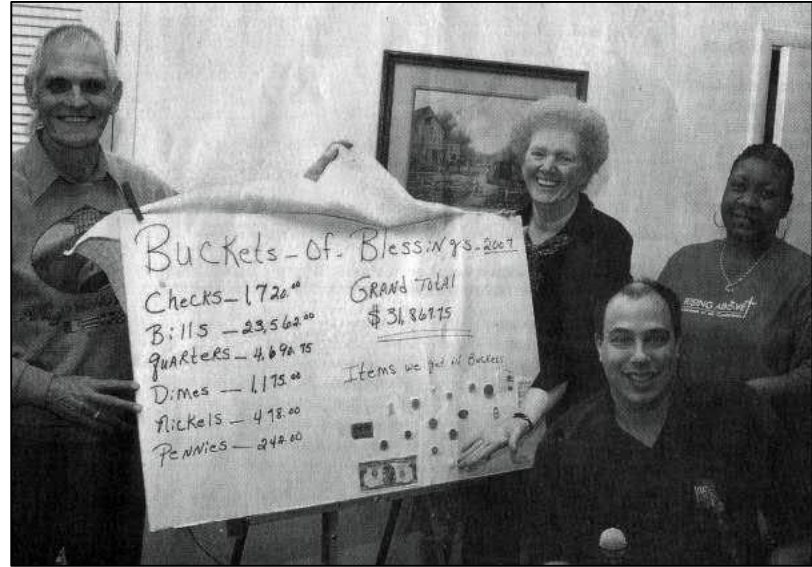 Buckets - Of - Blessings - 2007
Checks - 1,720.00
Bills - 23,562.00
quarters - 4,690.75
Dimes - 1,175.00
Nickels - 478.00
Pennies - 242.00
Grand Total
$ 31,867.75
Items we got in Buckets
RISING ABOVE